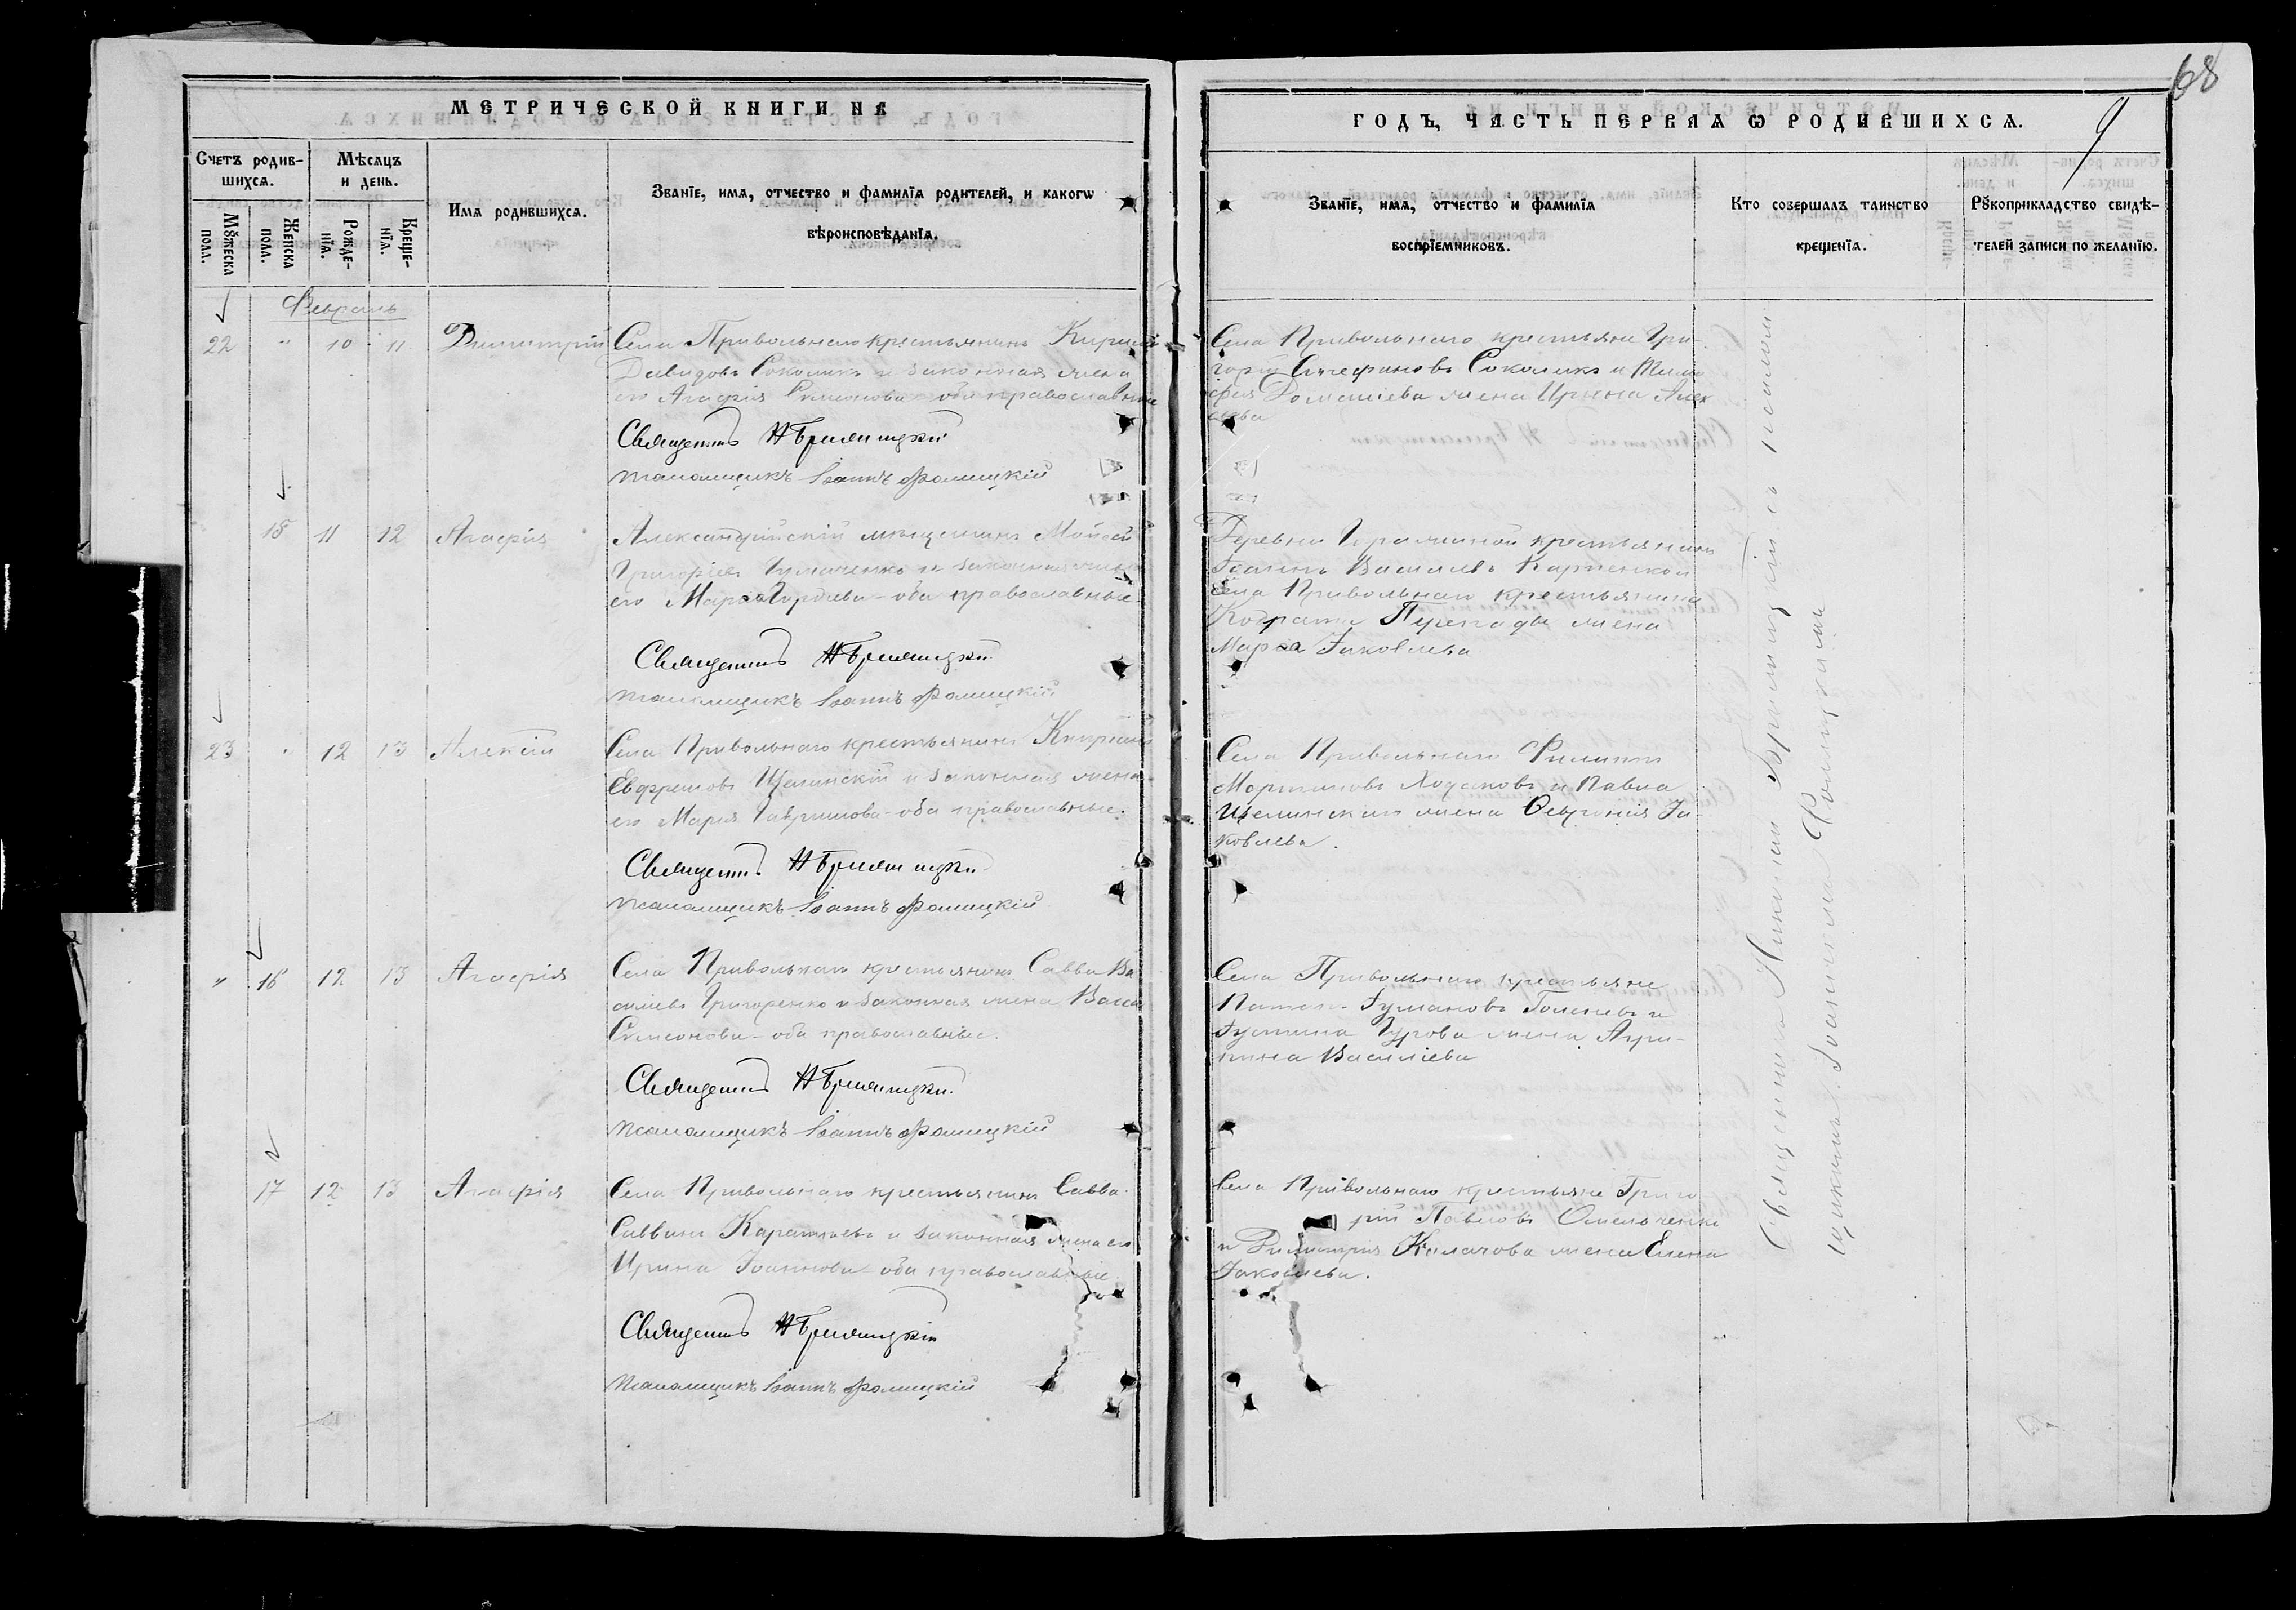 68
9
МЕТРИЧЕСКОЙ КНИГИ НА
ГОДЪ, ЧАСТЬ ПЕРВАѦ Ѡ РОДИВШИХСѦ.
Счетъ родив-
шихсѧ.
Мѣсѧцъ
и день.
Мꙋжеска
пола.
Женска
пола.
Рожде-
нїѧ.
Креще-
нїѧ.
Имѧ родившихсѧ.
Званїе, имѧ, отчество и фамилїѧ родителей, и какогѡ
вѣроисповѣданїѧ.
Званїе, имѧ, отчество и фамилїѧ
воспрїемниковъ.
Кто совершалъ таинство
крещенїѧ.
Рꙋкоприкладство свидѣ-
телей записи по желанїю.
Февраль
22 " 10 11 Димитрій
Села Привольнаго крестьянинъ Кирилъ
Давидовъ Соколикъ и законная жена
его Агафія Симеонова - оба православные
Священникъ Н Бриляницкій
псаломщикъ Іоаннъ Фолицкій
Села Привольнаго крестьяне Гри-
горій Стефановъ Соколикъ и
жена Ирина Алек
15 11 12 Агафія
Александрійскій мѣщанинъ Мойсей
Григоріевъ и законная жена
его Марѳа Гордѣева - оба православные
Священникъ Н Бриляницкій
псаломщикъ Іоаннъ Фолицкій
Деревни крестьянинъ
Іоаннъ Василіевъ Карпенко и
села Привольнаго крестьянина
Кодрата жена
Марѳа Іаковлева
23 " 12 13 Алексій
Села Привольнаго крестьянинъ Кипріанъ
Евфремовъ Щелинскій и законная жена
его Марія Гавриилова - оба православные.
Священникъ Н Бриляницкій
псаломщикъ Іоаннъ Фолицкій
Села Привольнаго Филиппъ
Мартиновъ Ходаковъ и Павла
Щелинскаго жена Февронія Іа-
ковлева.
" 16 12 13 Агафія
Села Привольнаго крестьянинъ Савва Ва
силіевъ Григоренко и законная жена Васса
Симеонова - оба православные.
Священникъ Н Бриляницкій
псаломщикъ Іоаннъ Фолицкій
Села Привольнаго крестьяне
и
Іустина Гурова жена Агри-
пина Василіева
17 12 13 Агафія
Села Привольнаго крестьянинъ Савва
Саввинъ и законная жена его
Ирина Іоаннова - оба православные
Священникъ Н Бриляницкій
псаломщикъ Іоаннъ Фолицкій
Села Привольнаго крестьяне Григо
рій Павловъ Омельченко
и Димитрія Калачова жена Елена
Іаковлева.
Священникъ Николай Бриляницкій съ псалом
щикомъ Іоанномъ Фолицкимъ